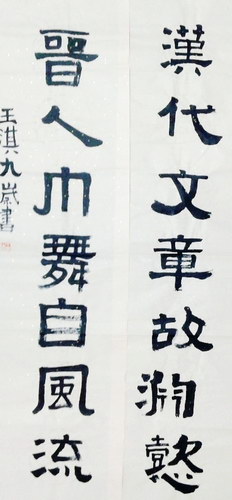 漢代文章故淵懿
晉人巾舞自風流
王淇九歲書